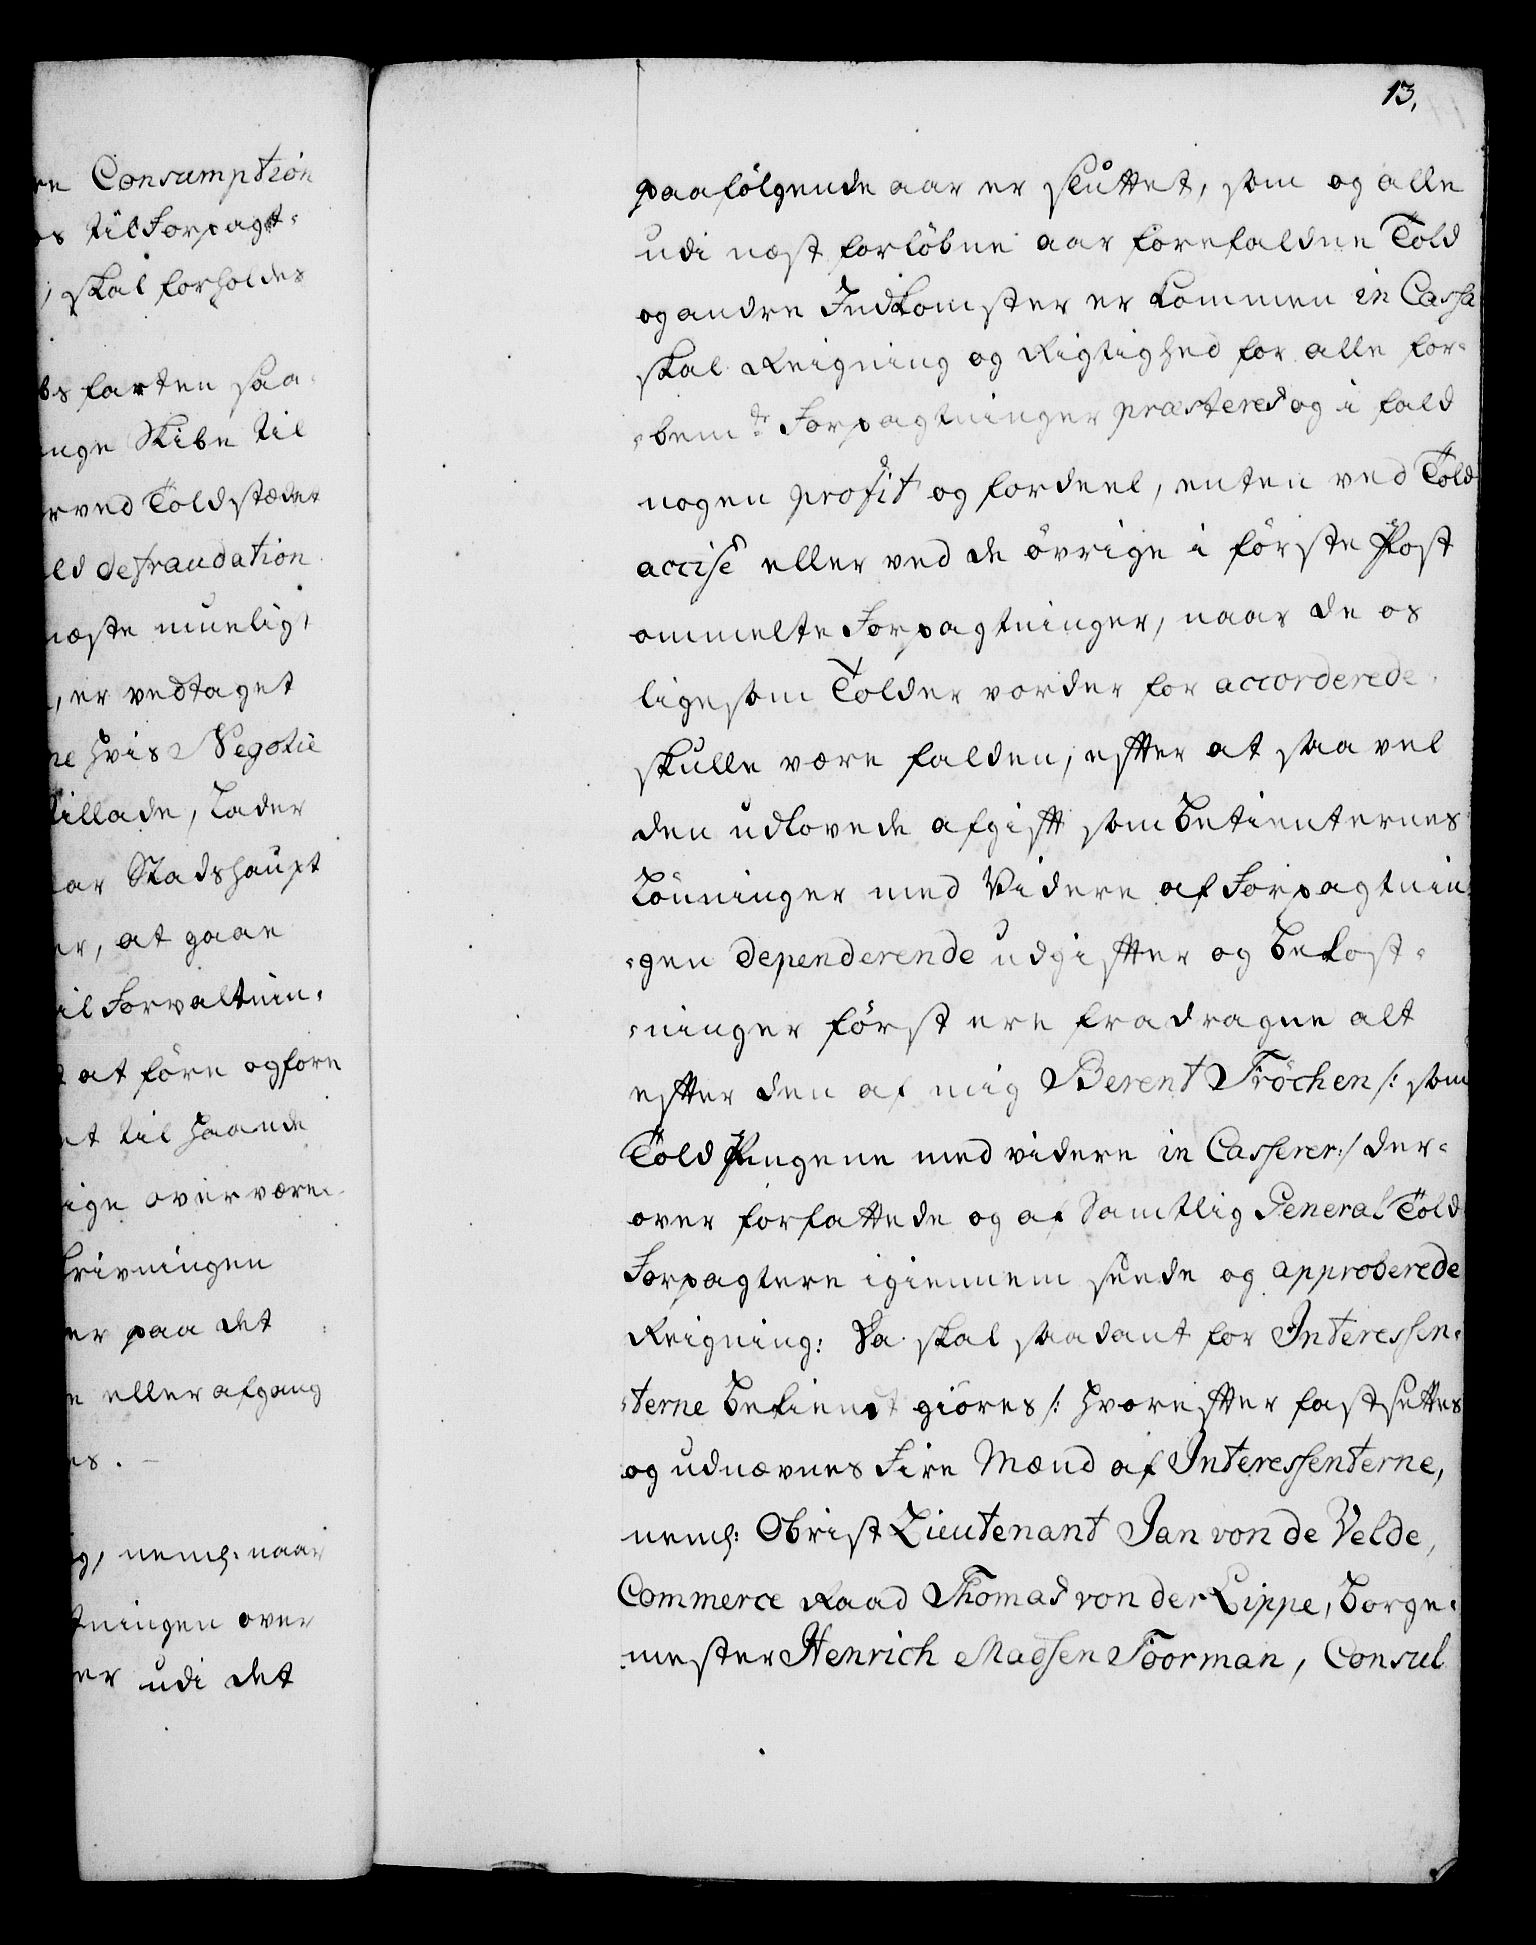 re Consumption
os til Forpagt-
skal forholdes
bs farten saa-
enge Skibe til
rved Toldstædet
ld defraudation
næste mueligt
, er vedtaget
ne hvis Negotie
tillade, lader
ar Stadshaupt
er, at gaae
il Forvaltnin-
at före og fore
et til haande
ige overværen-
krivningen
er paa det
e eller afgang
es. -
g, neml: naar
tningen over
er udi det
13.
paafölgende aar er sluttet, som og alle
udi næst forløbne aar forefaldne Told
og andre Indkomster er kommen in Cassa
skal Reigning og Rigtighed for alle for-
-bemte Forpagtninger præsteres og i fald
nogen profit og fordeel, enten ved Told
accise eller ved de övrige i förste Post
ommelte Forpagtninger, naar de os
ligesom Tolden vorder for accorderede.
skulle være falden, efter at saa vel
den udlovede afgift som Betienternes
Lönninger med Videre af Forpagtnin
-gen dependerende udgifter og Bekost-
-ninger först ere fradragne alt
efter den af mig Berent Tröchen /: som
Told Pengene med videre in Casserer :/ der-
over forfattede og af Samtlig General Told
Forpagtere igiennem seende og approberede
Reigning: Da skal saadant for Interessen-
-terne bekiendt giöres /: hvorefter fastsettes
og udnævnes Fire Mænd af Interessenterne,
neml: Obrist Lieutenant Jan von de Velde,
Commerce Raad Thomas von der Lippe, borge-
mester Henrich Madsen Toorman, Consul